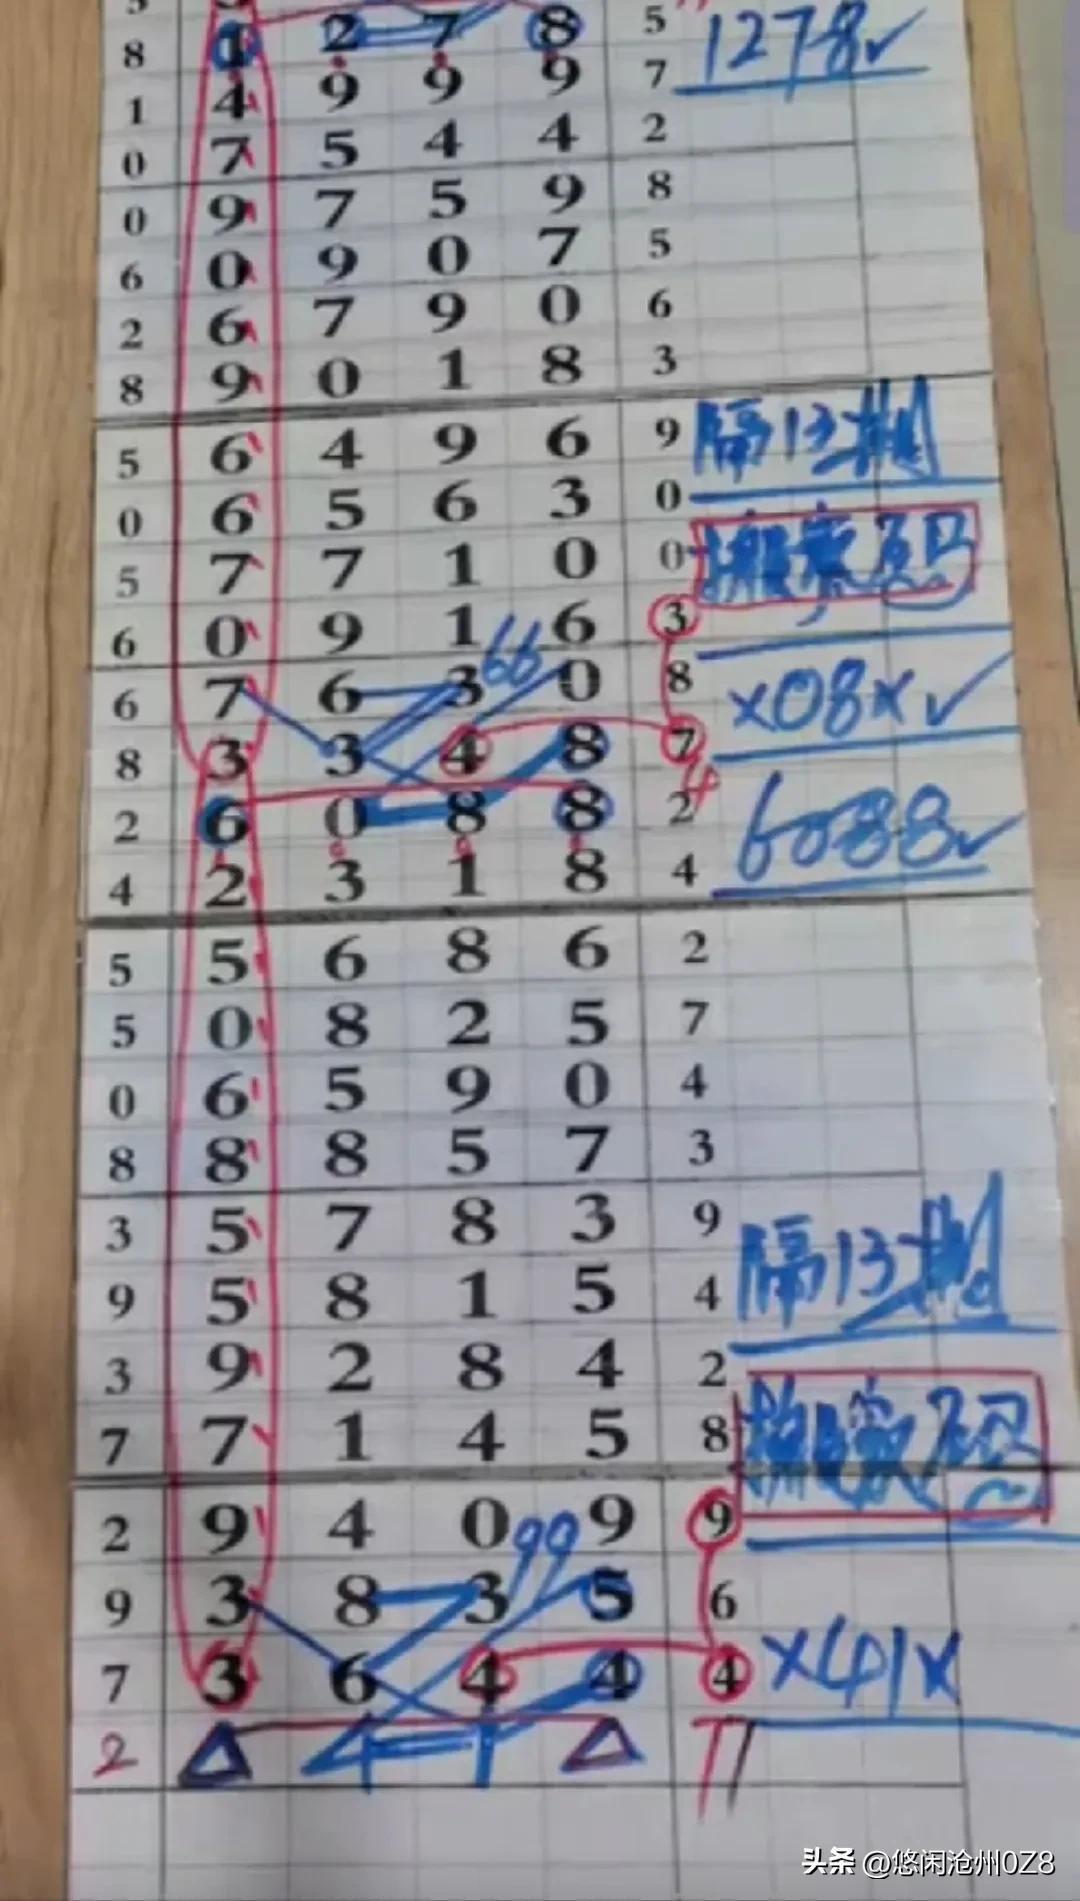 8 1 2 7 8 5 1278✓
1 4 9 9 9 7
0 7 5 4 4 2
0 9 7 5 9 8
6 0 9 0 7 5
2 6 7 9 0 6
8 9 0 1 8 3
5 6 4 9 6 9 隔13期
0 6 5 6 3 0
5 7 7 1 0 0
6 0 9 1 6 3
66
6 7 6 3 0 8 ×08×✓
8 3 3 4 8 7
4
2 6 0 8 8 2 6088✓
4 2 3 1 8 4
5 5 6 8 6 2
5 0 8 2 5 7
0 6 5 9 0 4
8 8 8 5 7 3
3 5 7 8 3 9
9 5 8 1 5 4 隔13期
3 9 2 8 4 2
7 7 1 4 5 8
2 9 4 0 9 9
99
9 3 8 3 5 6
7 3 6 4 4 4 ×41×
2 △ 4 1 △
头条 @悠闲沧州0Z8